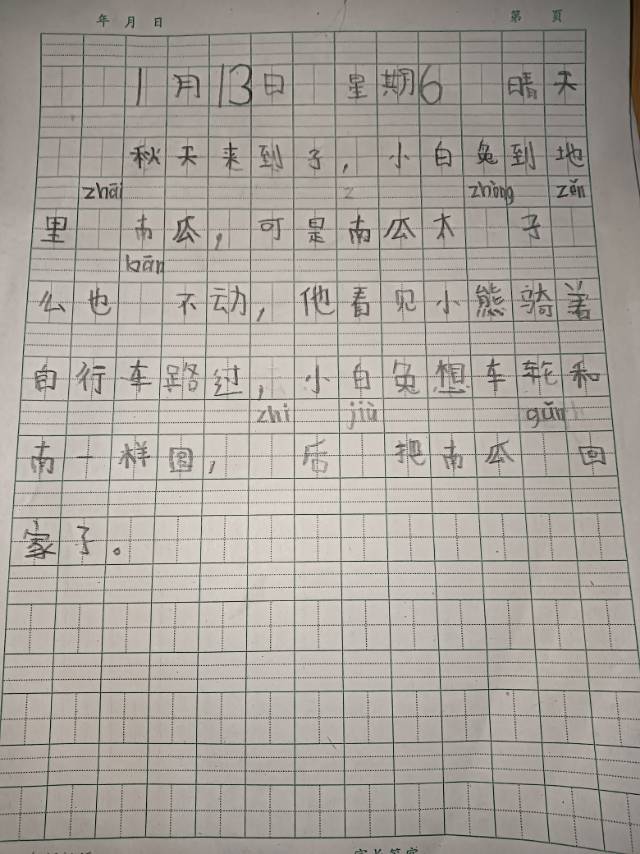 年 月 日 第 页
1月13日 星期6 晴天
秋天来到子，小白兔到地
zhāi zhòng zěn
里 南瓜，可是南瓜太 子
bān
么也 不动，他看见小熊骑着
自行车路过，小白兔想车轮和
zhi jiù gǔn
南一样圆， 后 把南瓜 回
家子。